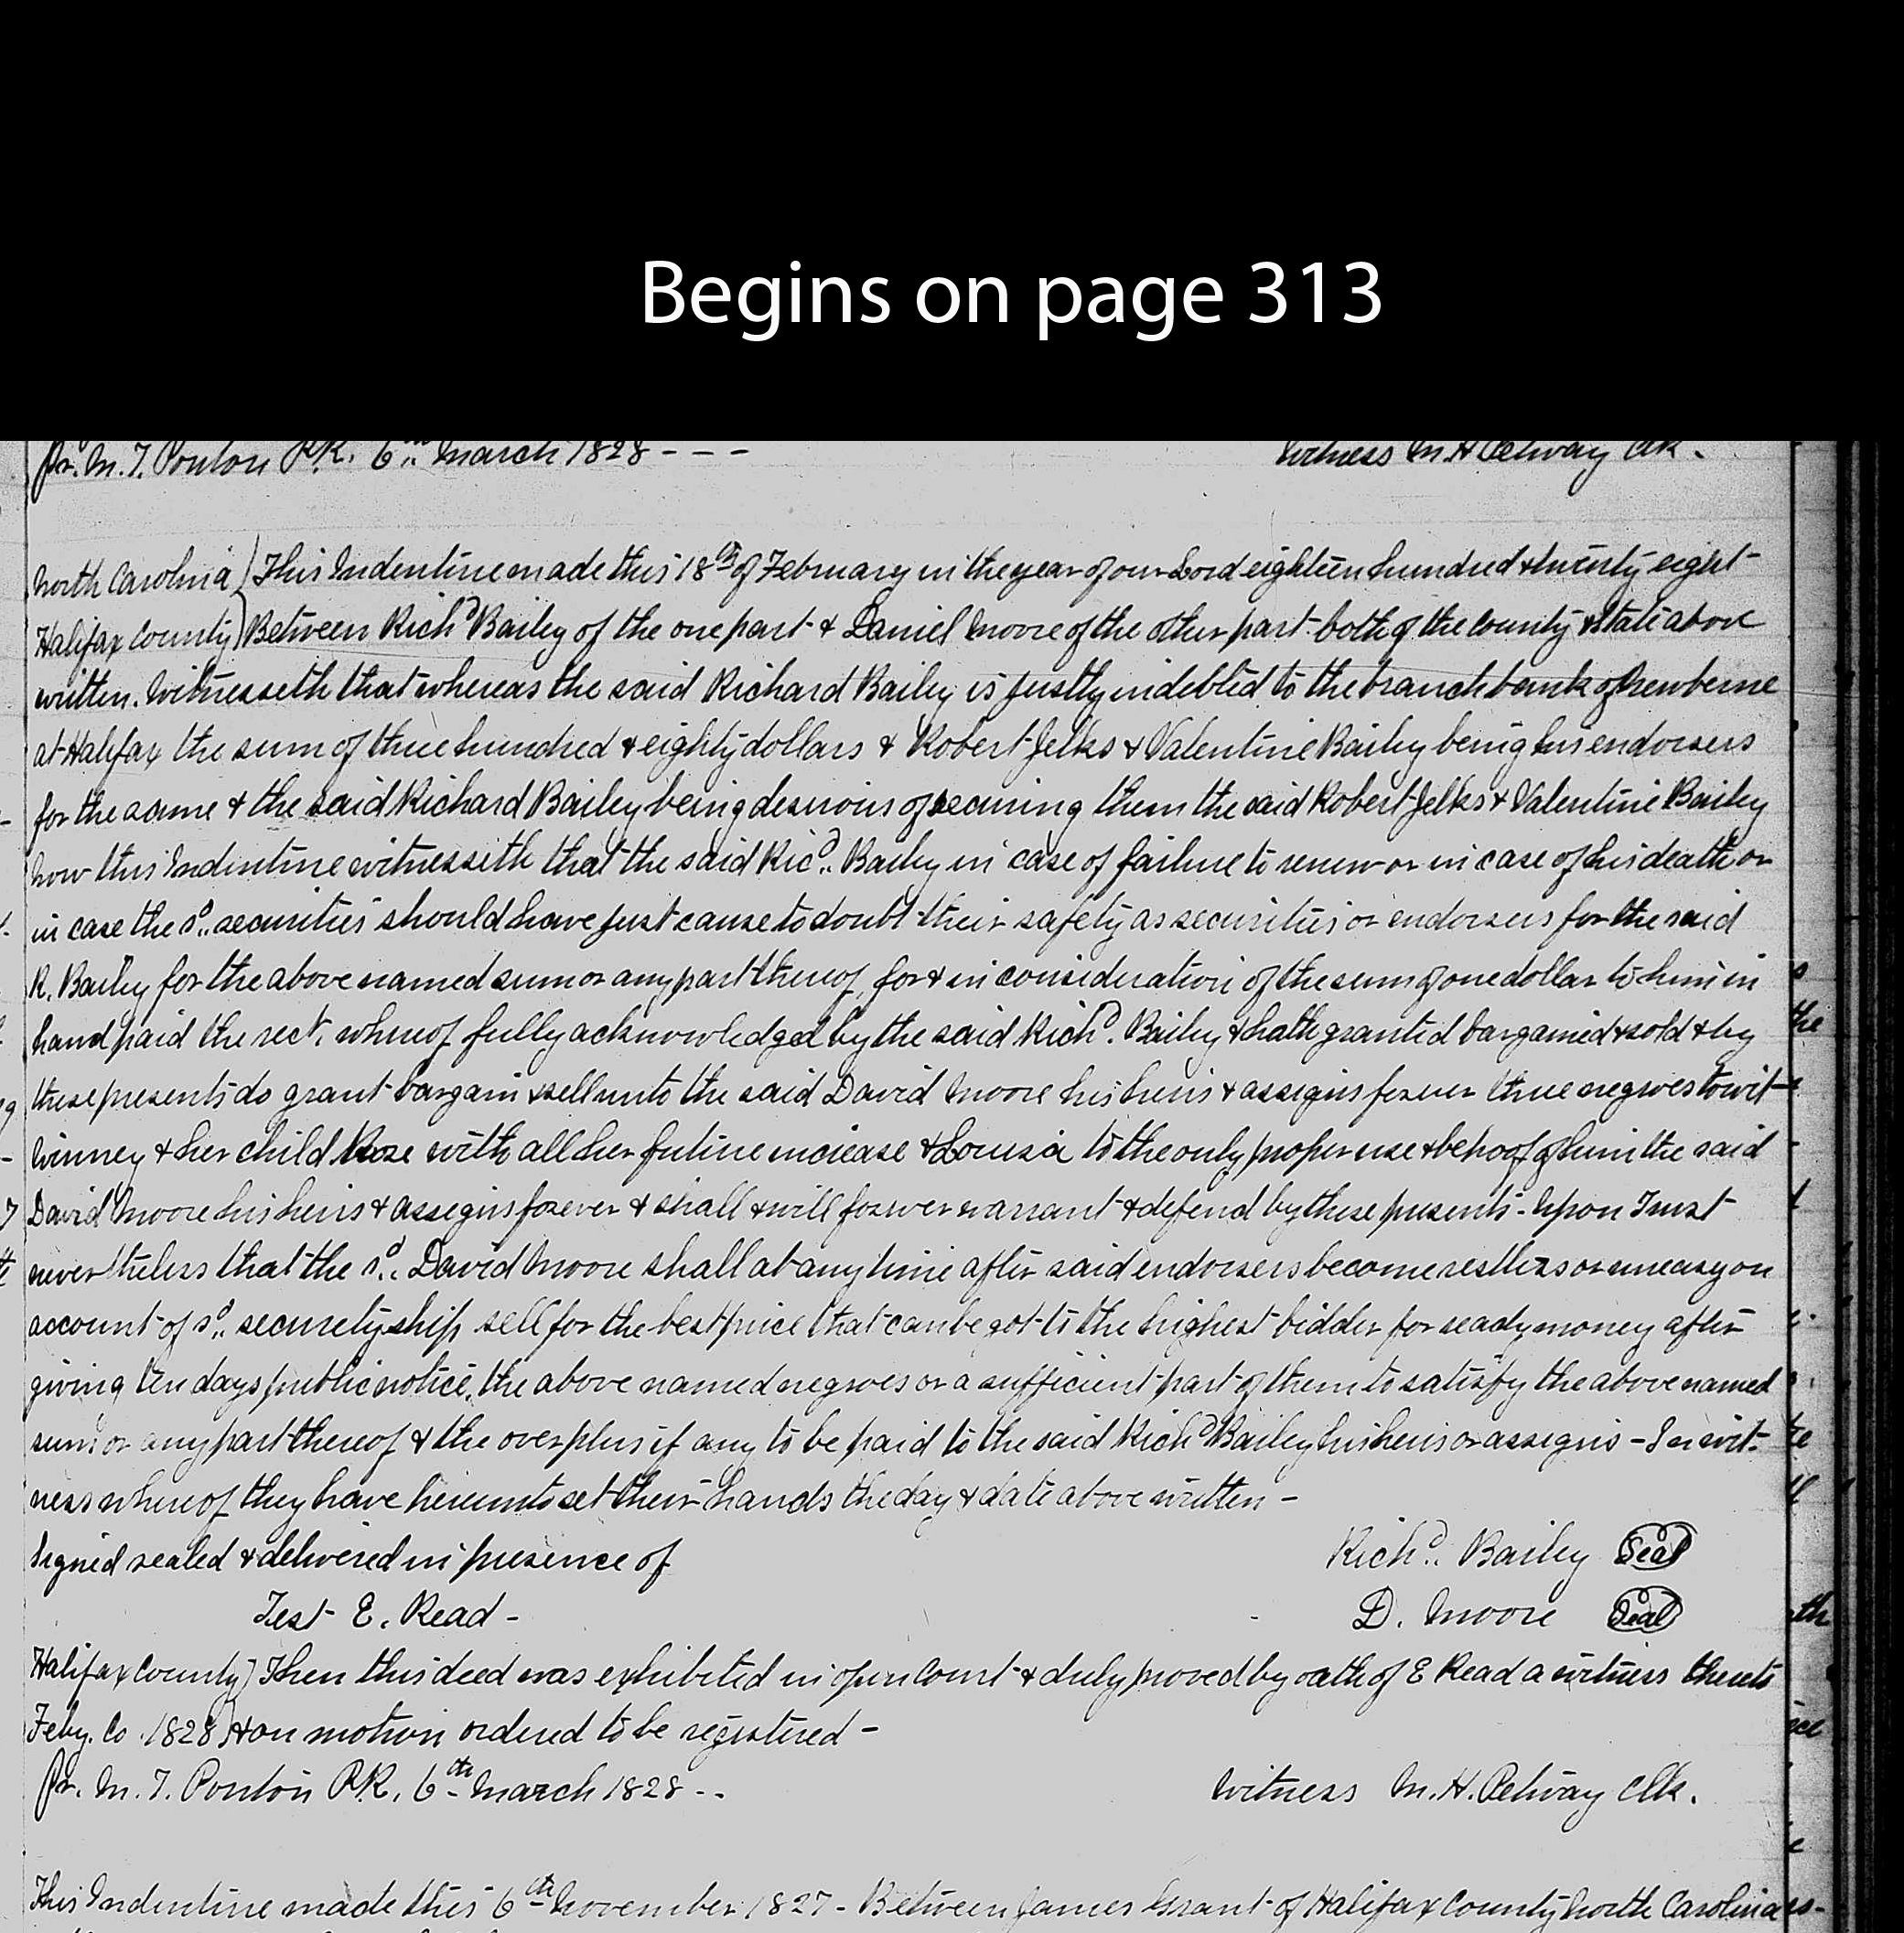 Begins on page 313
pr. M. T. Ponton P.R. 6th March 1828 - - -
Witness M. H. Petway Clk.
North Carolina } This Indenture made this 18th of February in the year of our Lord eighteen hundred & twenty eight
Halifax County } Between Richd Bailey of the one part & Daniel Moore of the other part both of the County & State above
written. Witnesseth that whereas the said Richard Bailey is justly indebted to the branch bank of Newberne
at Halifax the sum of three hundred & eighty dollars & Robert Jelks & Valentine Bailey being his endorsers
for the same & the said Richard Bailey being desirous of securing them the said Robert Jelks & Valentine Bailey
Now this Indenture witnesseth that the said Ricd. Bailey in case of failure to renew or in case of his death or
in case the sd. securities should have just cause to doubt their safety as securities or endorsers for the said
R. Bailey for the above named sum or any part thereof, for & in consideration of the sum of one dollar to him in
hand paid the rect. whereof fully acknowledged by the said Richd. Bailey & hath granted bargained & sold & by
these presents do grant bargain & sell unto the said David Moore his heirs & assigns forever three negroes towit
Winney & her child Rose with all her future increase & Louisa to the only proper use & behoof of him the said
David Moore his heirs & assigns forever & shall & will forever warrant & defend by these presents - Upon Trust
nevertheless that the sd. David Moore shall at any time after said endorsers become restless or uneasy on
account of sd. securetyship sell for the best price that can be got to the highest bidder for ready money after
giving ten days public notice, the above named negroes or a sufficient part of them to satisfy the above named
sum or any part thereof & the overplus if any to be paid to the said Richd Bailey his heirs or assigns - In wit-
ness whereof they have hereunto set their hands the day & date above written -
Signed sealed & delivered in presence of
Richd. Bailey Seal
Test E. Read -
D. Moore Seal
Halifax County } Then this deed was exhibited in open Court & duly proved by oath of E Read a witness thereto
Feby. Co. 1828 } & on motion ordered to be registered -
pr. M. T. Ponton P.R. 6th March 1828 - -
Witness M. H. Petway Clk.
This Indenture made this 6th November 1827 - Between James Grant of Halifax County North Carolina